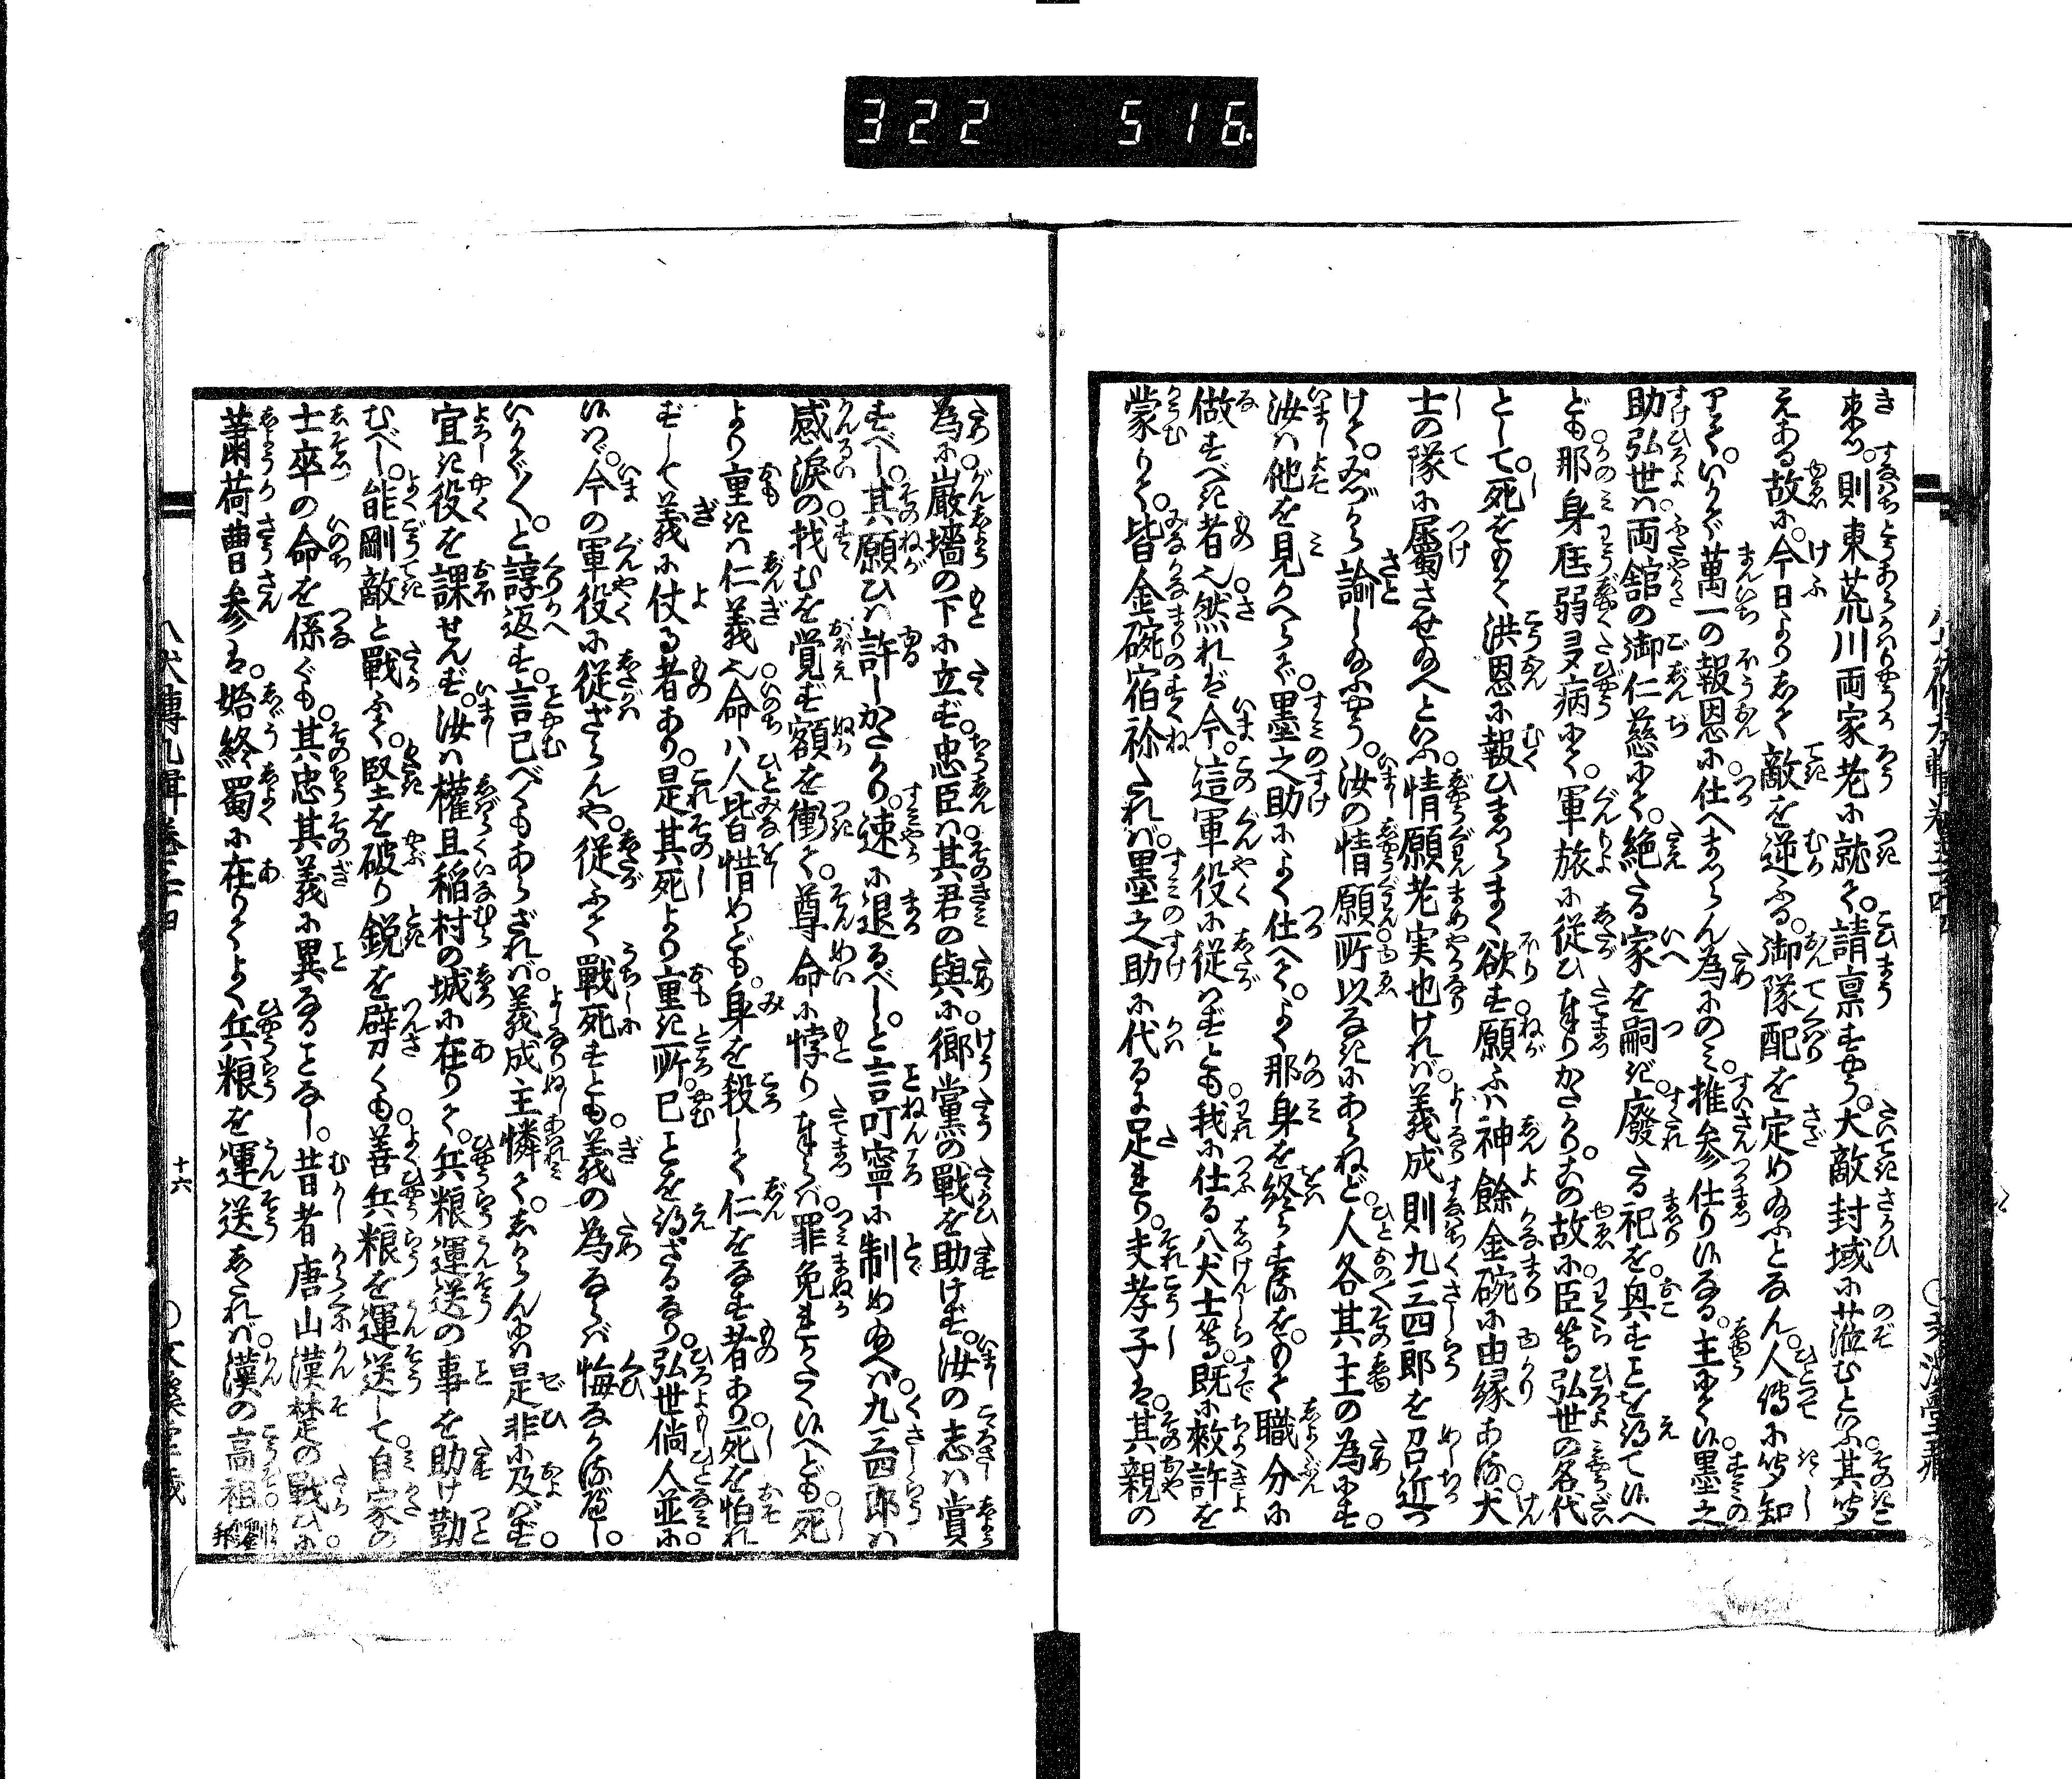 322 516
来つ。則東荒川両家老に就て。請禀すやう。大敵封域に莅むといふ。其聞
えある故に。今日よりして敵を逆ふる。御隊配を定め給ふとなん。人傳に聞知
りて。いかで萬一の報恩に仕へまつらん為にのミ。推参仕り候なる。主にて候墨之
助弘世ハ。両舘の御仁慈にて。絶たる家を嗣ぎ。廢れたる祀を。興すことを得て候へ
ども。那身尪弱多病にて。軍旅に従ひ奉りかたかり。この故に臣等弘世の名代
として。死をもて洪恩に報ひまつらまく欲す。願ふハ神餘金碗に由縁ある。犬
士の隊に屬させ給へといふ。情願老実也ければ。義成則九三四郎を召近つ
けて。みづから諭し給ふやう。汝の情願所以なきにあらねど。人各其主の為にす。
汝ハ他を見かへらで。墨之助によく仕へて。よく那身を終らするをもて職分に
做すべき者也。然れば今。這軍役に従はずとも。我に仕る八犬士等。既に敕許を
蒙りて。皆金碗宿祢たれバ。墨之助に代るに足れり。夫孝子は。其親の
為に巌墻の下に立ず。忠臣ハ其君の與に。郷黨の戰を助けず。汝の志ハ賞
すべし。其願ひハ許しかたかり。速に退るべし。と言叮寧に制め給へバ。九三四郎ハ
感涙の找むを覚ず。額を衝て。尊命に悖り奉らバ。罪免れかたく候へども。死
より重きハ仁義也。命ハ人皆惜めども。身を殺して仁をなす者あり。死を怕れ
ずして義に仗る者あり。是其死より重き所。已ことを得ざるなり。弘世倘人並に
候ハゞ。今の軍役に従ざらんや。従ふて戰死すとも。義の為ならバ悔なかるべし。
いかでいかで。と諄返す。言已べくもあらざれバ。義成主憐て。しからんにハ是非に及ばず。
宜き役を課せんず。汝ハ權且稲村の城に在りて。兵粮運送の事を助け勤
むべし。能剛敵と戰ふて。堅を破り鋭を劈くも。善兵粮を運送して自家の
士卒の命を係ぐも。其忠其義に異なることなし。昔者唐山漢楚の戰ひに。
蕭荷曹参は。始終蜀に在りてよく兵粮を運送したれバ。漢の高祖劉邦
八犬傳九輯巻三十四
十六